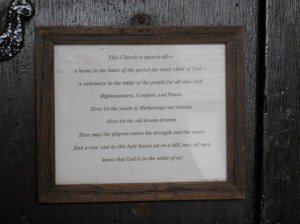 This Church is open to all—
a home in the heart of the parish for every child of God—
a sanctuary in the midst of the people for all who seek
Righteousness, Comfort, and Peace.
Here let the youth of Harborough see visions.
Here let the old dream dreams.
Here may the pilgrim renew his strength and the weary
find a rest: and by this holy house set on a hill, may all men
know that God is in the midst of us!